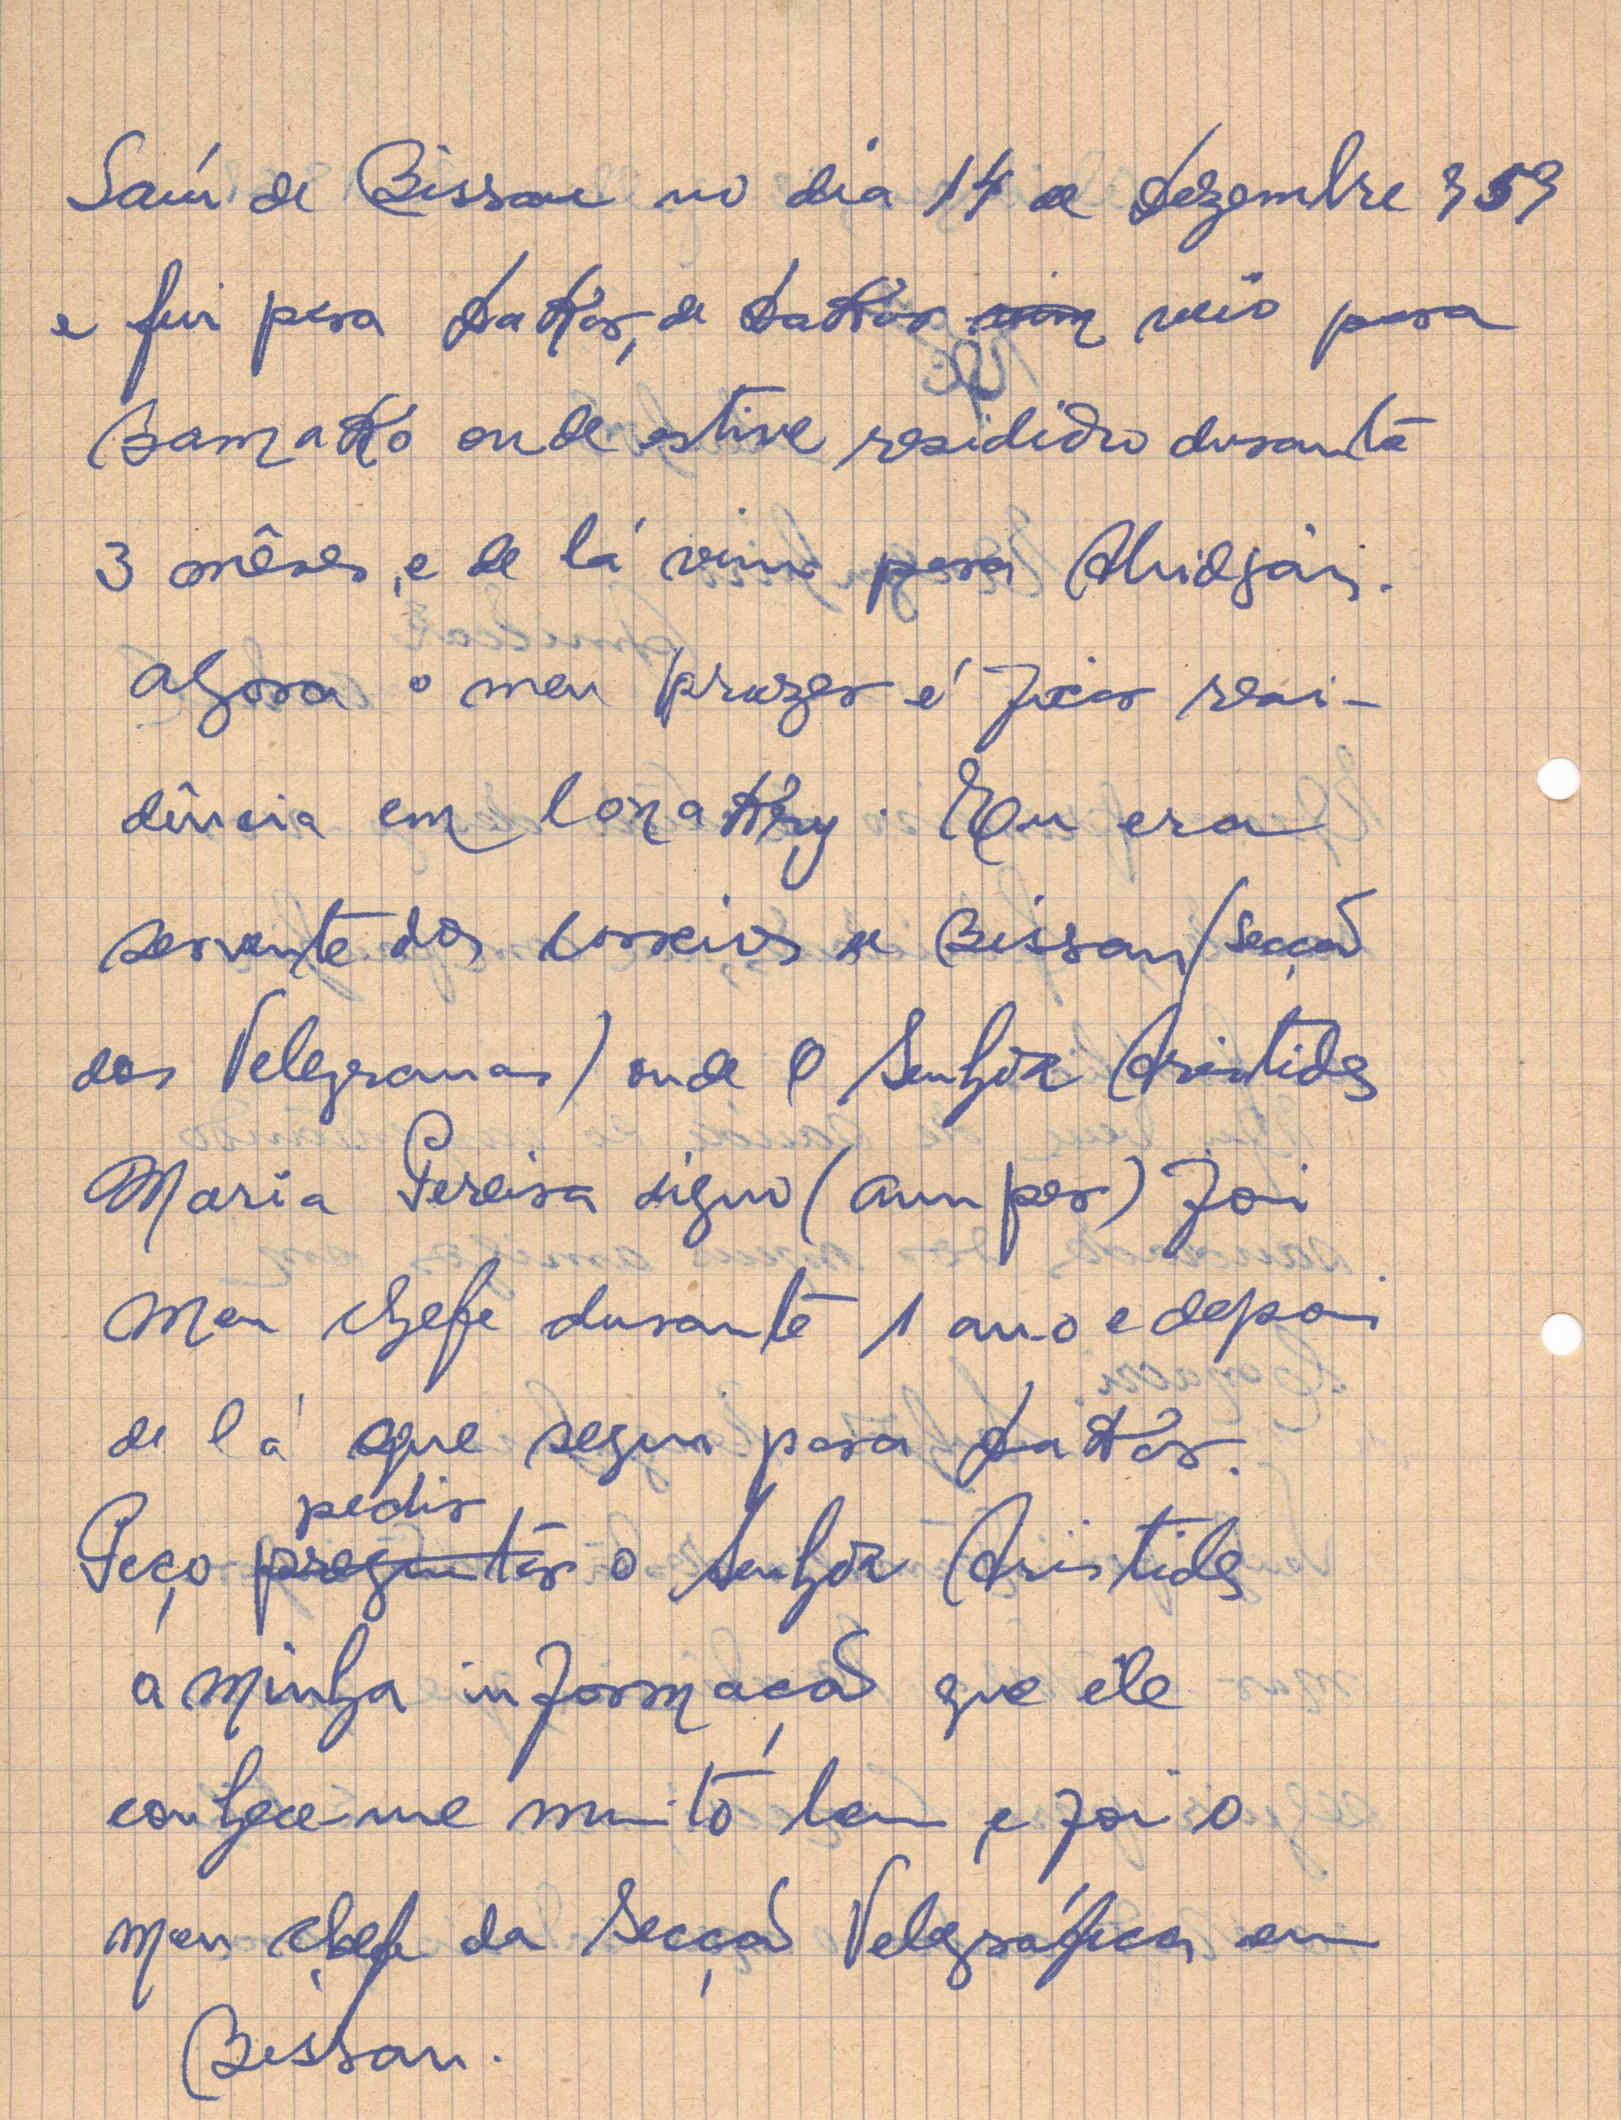 Saín de Bissau no dia 14 de dezembre 959
e fui para dakkar, de dakkar vim veio para
Bamakko onde estive residido durante
3 mêses, e de lá vim para Abidgan.
Agora o meu prazer é ficar resi-
dência em Conakkry. Eu era
servente dos Correios de Bissau (Secção
dos Telegramas) onde o Senhor Aristides
Maria Pereira digno ( ) foi
meu chefe durante 1 ano e depoi
de lá que segui para dakkar.
pedir
Peço preguntar o Senhor Aristides
a minha informação que êle
conhece-me muito bem, e foi o
meu chefe da Secção Telegráfica em
Bissau.